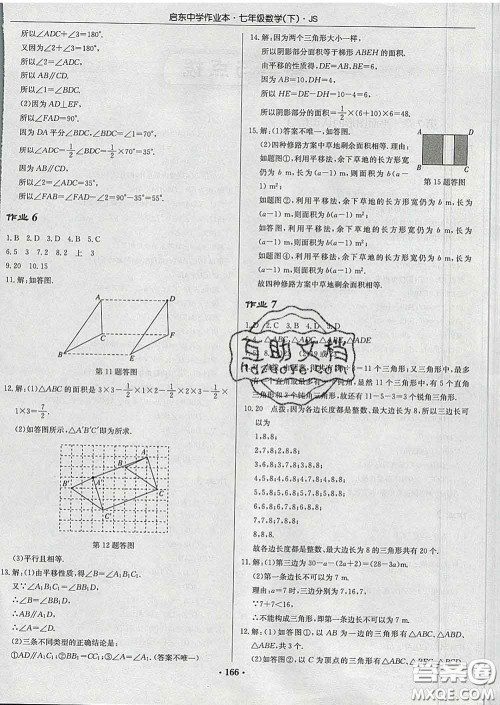 启东中学作业本·七年级数学(下)·JS
所以∠ADC+∠3=180°.
又因为∠2=∠ADC,
所以∠2+∠3=180°.
所以AB∥CF.
(2)因为AD⊥EF,
所以∠FAD=90°.
因为DA平分∠BDC,∠BDC=∠1=70°,
所以∠ADC=1/2∠BDC=1/2×70°=35°.
因为AB∥CD,
所以∠2=∠ADC=35°.
所以∠FAB=∠FAD-∠2=90°-35°=55°.
作业 6
1.B 2.D 3.D 4.B 5.C
6.5 3 7.2 8.2 上 3
9.20 10.15
11.解:如答图.
A D
C F
B E
第11题答图
12.解:(1)△ABC的面积是3×3-1/2×1×2-1/2×2×3-1/2
×1×3=7/2.
(2)如答图所示,△A'B'C'即为所求.
A B B' A' C C'
第12题答图
(3)平行且相等.
13.解:(1)由平移性质,得∠A=∠B₁A₁C₁.
又∵∠B₁A₁C₁=∠BA₁D,
∴∠A=∠BA₁D.
∵∠A=∠BA₁D,
∴AC∥A₁D.
(2)三条不同类型的正确结论是:
①AD∥A₁C₁;②BB₁=CC₁;③∠A=∠BA₁D.(答案不唯一)
14.解:因为两个三角形大小一样,
所以阴影部分面积等于梯形ABEH的面积.
由平移的性质得,DE=AB,BE=6.
因为AB=10,DH=4,
所以HE=DE-DH=10-4=6.
所以阴影部分的面积=1/2×(6+10)×6=48.
15.解:(1)答案不唯一,如答图.
(2)四种修路方案中草地剩余面积相等.理由:
如题图①,利用平移法,余下草地的长方形
宽仍为b m,长为(a-1) m,则面积为
b(a-1) m².
第15题答图
如题图②,利用平移法,余下草地的长方形宽仍为b m,长
为(a-1) m,则面积为b(a-1) m².
如题图③,利用平移法,余下草地的长方形宽仍为b m,长
为(a-1) m,则面积为b(a-1) m².
如答图,利用平移法,余下草地的长方形宽仍为b m,长为
(a-1) m,则面积为b(a-1) m².
故四种修路方案中草地剩余面积相等.
作业 7
角形和3个钝角三角形,故还有11-5-3=3个锐角三角形.
10.20 点拨:因为各边长度都是整数、最大边长为8,所以三边边长可
以为
1,8,8;
2,7,8;2,8,8;
3,6,8;3,7,8;3,8,8;
4,5,8;4,6,8;4,7,8;4,8,8;
5,5,8;5,6,8;5,7,8;5,8,8;
6,6,8;6,7,8;6,8,8;
7,7,8;7,8,8;
8,8,8.
故各边长度都是整数、最大边长为8的三角形共有20个.
11.解:(1)第三边为30-a-(2a+2)=(28-3a)m.
(2)第一条边长不可以为7 m.
理由:a=7时,三边分别为7,16,7,
∵7+7<16,
∴不能构成三角形,即第一条边长不可以为7 m.
12.解:(1)如答图①,以AB为一边的三角形有△ABC,△ABD,
△ABE,共3个.
·166·
答案圈
MXQE.COM